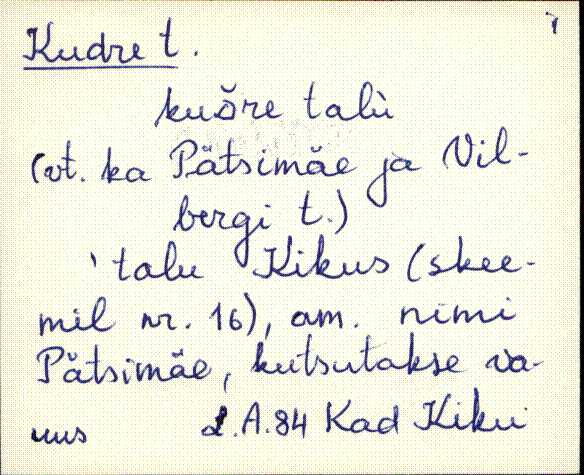 Kudre t.
kuδre talù
(vt. ka Pätsimäe ja Vil-
bergi t.)
'talu Kikus (skee-
mil nr. 16), am. nimi
Pätsimäe, kutsutakse va-
nus L.A.84 Kad Kiku